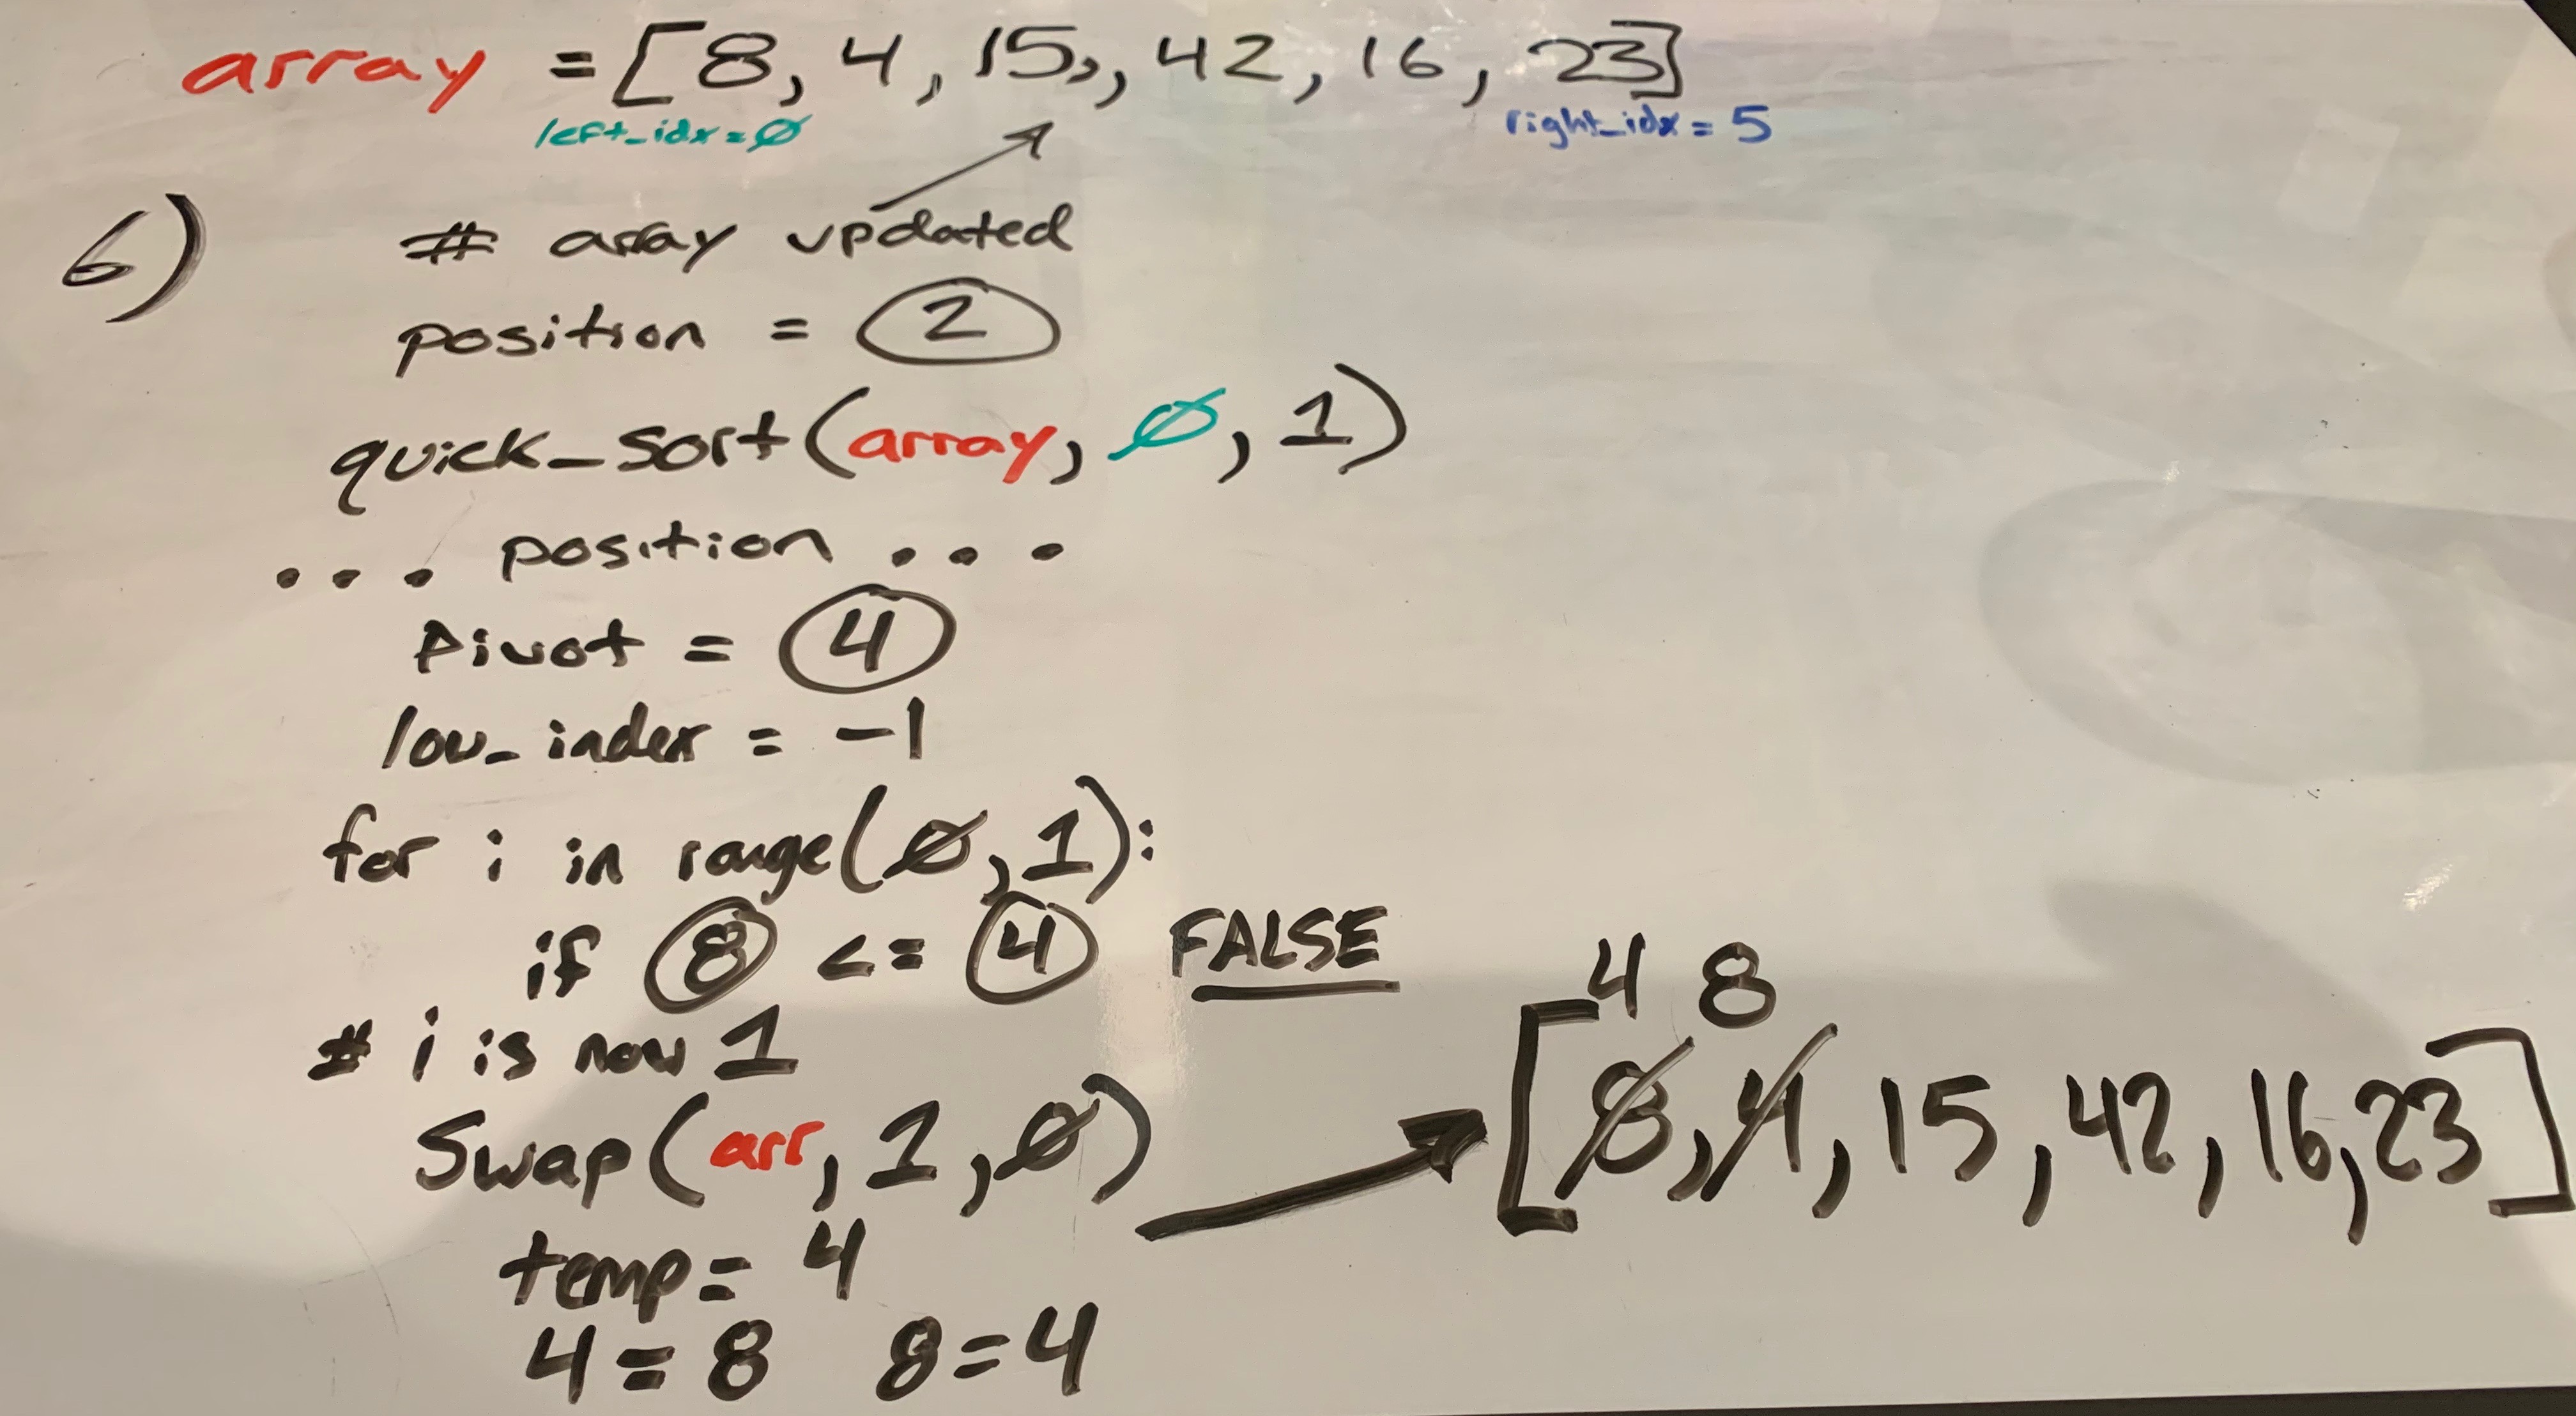 array = [8, 4, 15,, 42, 16, 23]
left_idx = Ø
right_idx = 5
6)
# array updated
position = 2
quick_sort(array, Ø, 1)
... position ...
Pivot = 4
low_index = -1
for i in range(Ø, 1):
if 8 <= 4 FALSE
# i is now 1
Swap(arr, 1, Ø)
temp = 4
4 = 8 8 = 4
4 8
[8, 4, 15, 42, 16, 23]